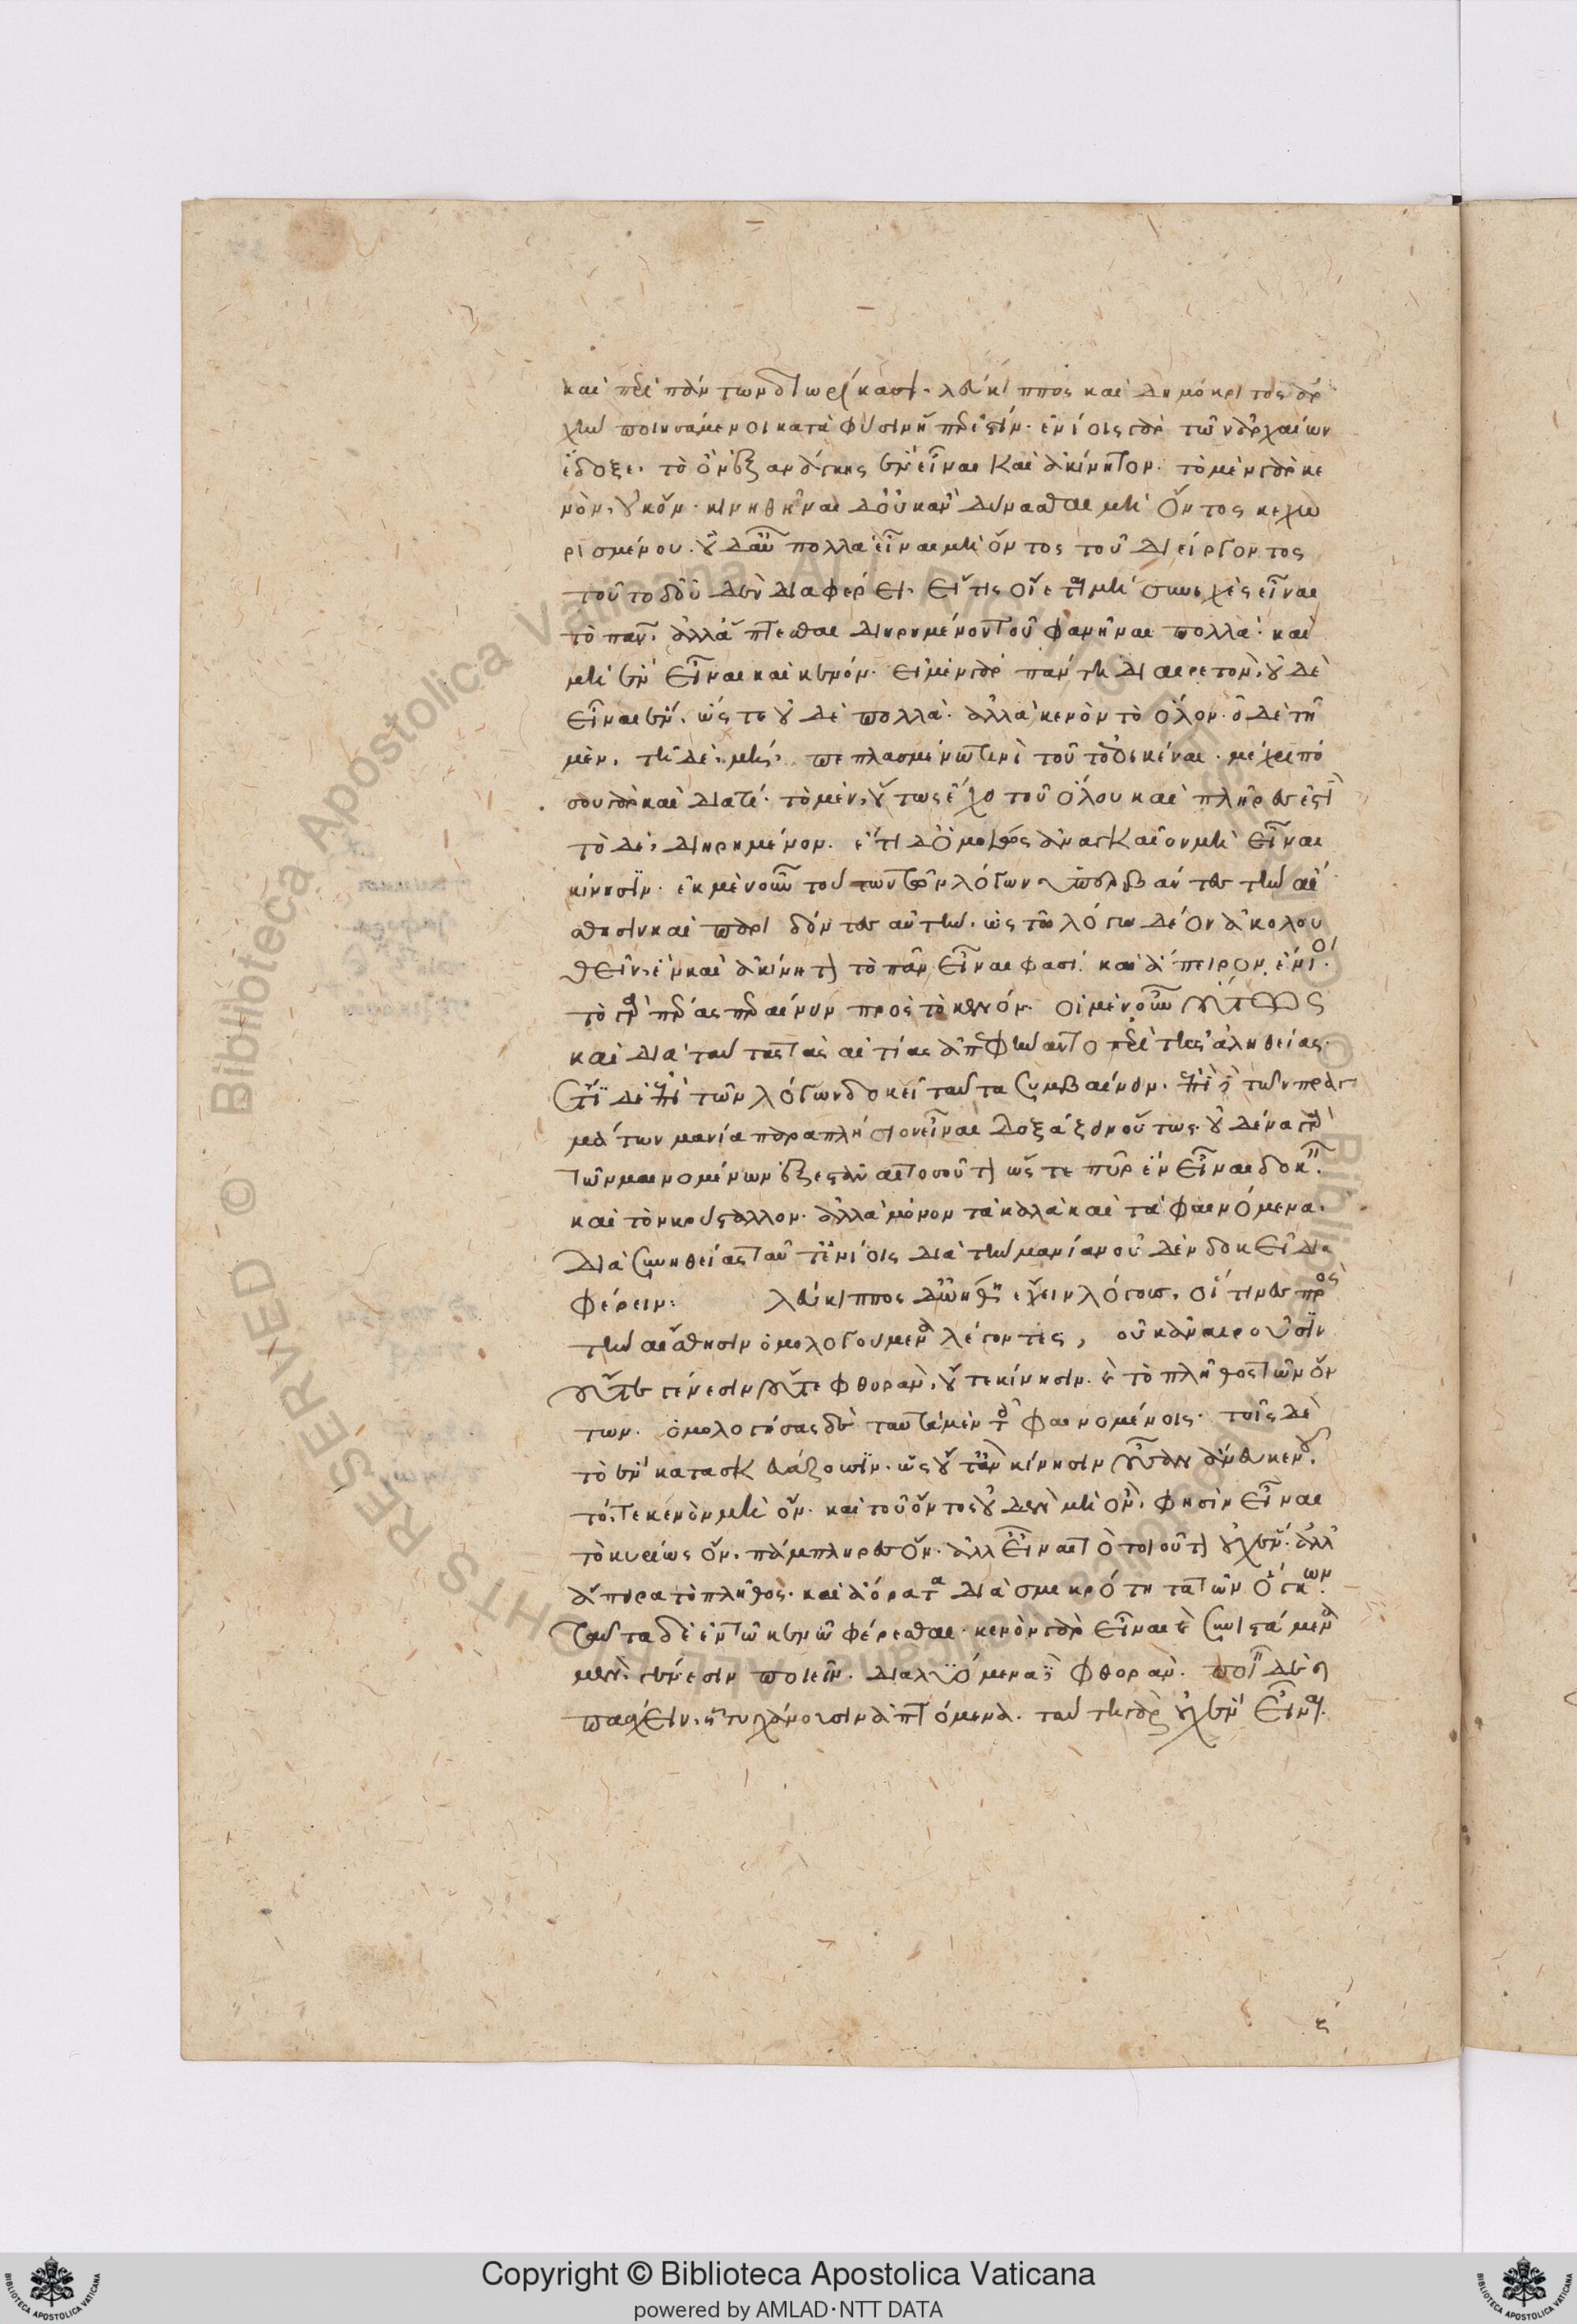 καὶ περὶ πάντων διωρίκασι· λεύκιππος καὶ δημόκριτος ἀρ
χὴν ποιησάμενοι κατὰ φύσιν ἥπερ ἐστίν· ἐνίοις γὰρ τῶν ἀρχαίων
ἔδοξε· τὸ ὂν ἐξ ἀνάγκης ἓν εἶναι καὶ ἀκίνητον· τὸ μὲν γὰρ κε
νὸν, οὐκ ὄν· κινηθῆναι δ' οὐκ ἂν δύνασθαι μὴ ὄντος κεχω
ρισμένου· οὐδ' αὖ πολλὰ εἶναι μὴ ὄντος τοῦ διείργοντος
τοῦτο δ' οὐδὲν διαφέρει· εἴ τις οἴεται μὴ συνεχὲς εἶναι
τὸ πᾶν· ἀλλ' ἅπτεσθαι διηρημένον τοῦ φανῆναι πολλὰ· καὶ
μὴ ἓν εἶναι καὶ κενόν· εἰ μὲν γὰρ πάντη διαιρετὸν, οὐδὲ
εἶναι ἓν· ὥστε οὐδὲ πολλὰ· ἀλλὰ κενὸν τὸ ὅλον· εἰ δὲ τῆ
μὲν, τῆ δὲ μὴ, πεπλασμένω τινὶ τοῦτ' ἐοικέναι· μέχρι πό
σου γὰρ καὶ διατί· τὸ μὲν, οὕτως ἔχει τοῦ ὅλου καὶ πλῆρες ἐστὶ
τὸ δὲ, διηρημένον· ἔτι δ' ὁμοίως ἀναγκαῖον μὴ εἶναι
κίνησιν· ἐκ μὲν οὖν τούτων τῶν λόγων ὑπερβάντες τὴν αἴ
σθησιν καὶ παριδόντες αὐτὴν· ὡς τῶ λόγω δέον ἀκολου
θεῖν, ἓν καὶ ἀκίνητον τὸ πᾶν εἶναι φασί· καὶ ἄπειρον ἔνιοι·
τὸ γὰρ πέρας περαίνειν πρὸς τὸ κενόν· οἱ μὲν οὖν οὕτως
καὶ διὰ ταύτας τὰς αἰτίας ἀπεφήναντο περὶ τῆς ἀληθείας·
ἔτι δὲ ἐπὶ τῶν λόγων δοκεῖ ταῦτα συμβαίνειν· ἐπὶ δὲ τῶν πραγ
μάτων μανία παραπλήσιον εἶναι δοξάζειν οὕτως· οὐδένα γὰρ
τῶν μαινομένων ἐξεστάναι τοσοῦτον ὥστε πῦρ ἓν εἶναι δοκεῖν·
καὶ τὸν κρύσταλλον· ἀλλὰ μόνον τὰ καλὰ καὶ τὰ φαινόμενα·
διὰ συνηθείας ταῦτ' ἐνίοις διὰ τὴν μανίαν οὐδὲν δοκεῖ δια
φέρειν: λεύκιππος δ' ὠήθη ἔχειν λόγους, οἵτινες πρὸς
τὴν αἴσθησιν ὁμολογούμενα λέγοντες, οὐκ ἀναιροῦσιν
οὔτε γένεσιν οὔτε φθορὰν, οὔτε κίνησιν· καὶ τὸ πλῆθος τῶν ὄν
των· ὁμολογήσας δὲ ταῦτα μὲν τοῖς φαινομένοις· τοῖς δὲ
τὸ ἓν κατασκευάζουσιν· ὡς οὔτ' ἂν κίνησιν οὖσαν ἄνευ κενοῦ·
τό, τε κενὸν μὴ ὄν· καὶ τοῦ ὄντος οὐδὲν μὴ ὄν, φησὶν εἶναι
τὸ κυρίως ὄν, πάμπληρες ὄν· ἀλλ' εἶναι τὸ τοιοῦτον οὐχ ἕν· ἀλλ'
ἄπειρα τὸ πλῆθος· καὶ ἀόρατα διὰ σμικρότητα τῶν ὄγκων·
ταῦτα δὲ ἐν τῶ κενῶ φέρεσθαι· κενὸν γὰρ εἶναι καὶ συνιστάμενα
μὲν, γένεσιν ποιεῖν· διαλυόμενα δὲ φθοράν· ποιεῖν δὲ καὶ
πάσχειν, ἧ τυγχάνουσιν ἁπτόμενα· ταύτη γὰρ οὐχ ἓν εἶναι·
ς
Copyright © Biblioteca Apostolica Vaticana
powered by AMLAD·NTT DATA